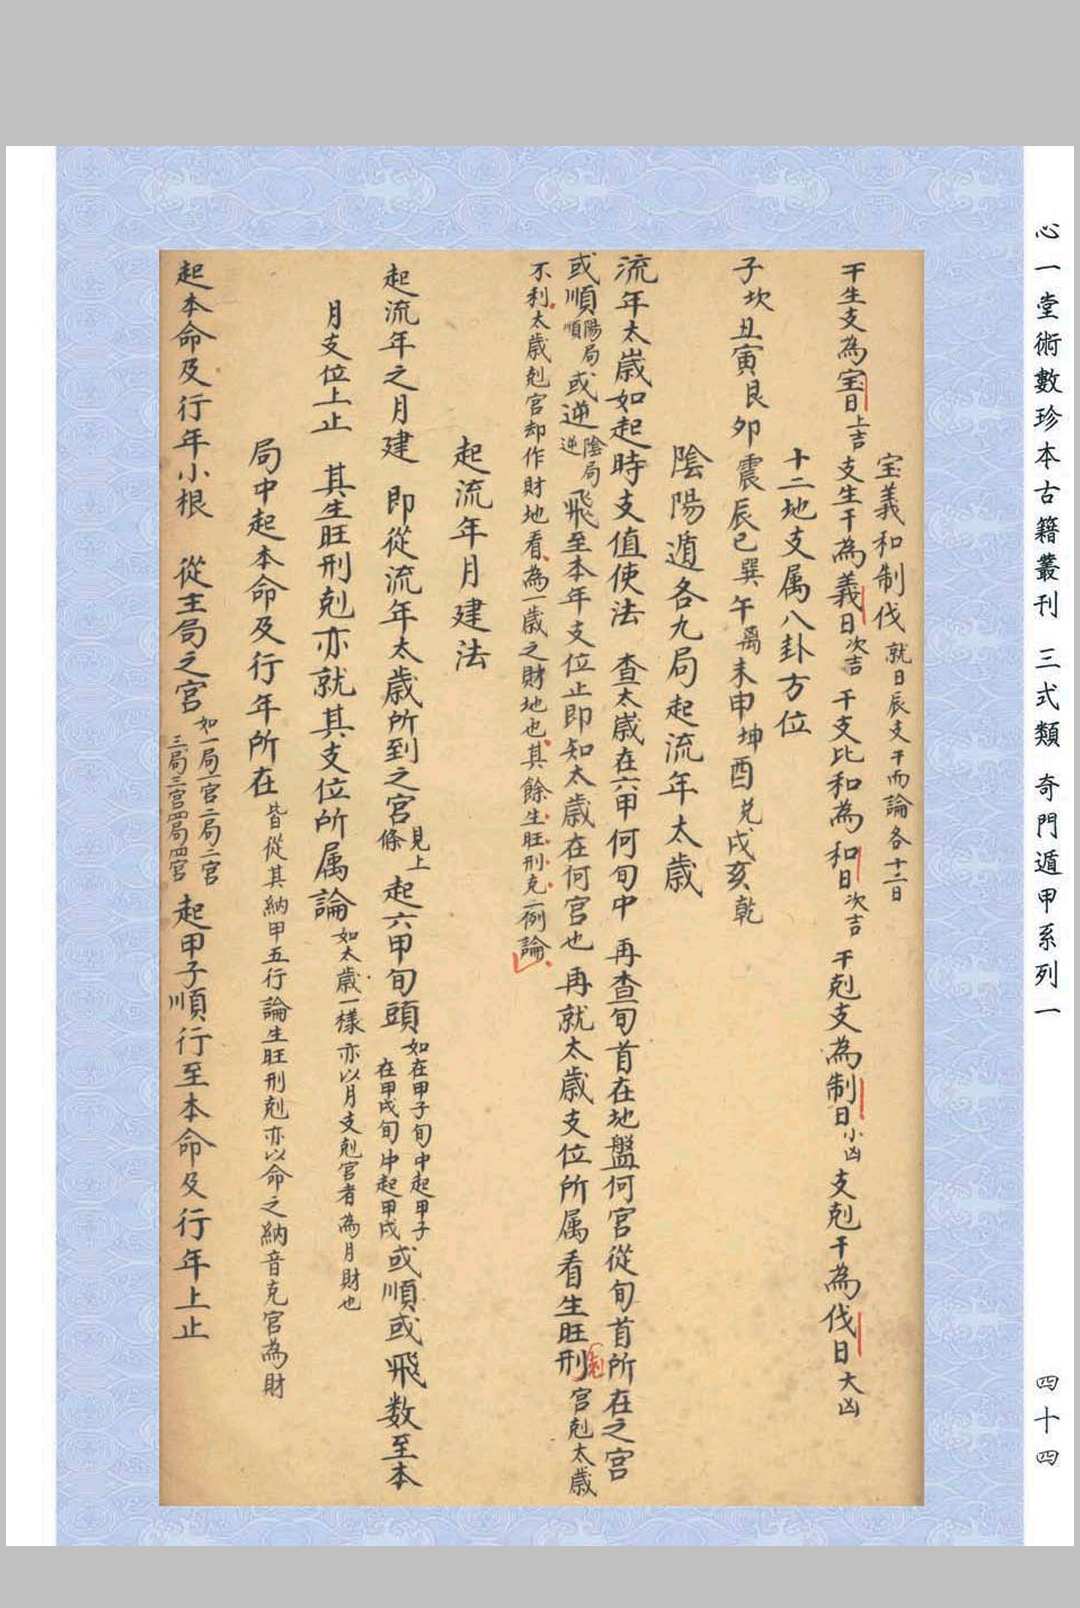 心一堂術數珍本古籍叢刊 三式類 奇門遁甲系列一
四十四
宝義和制伐 就日辰支干而論各十二日
干生支為宝日上吉 支生干為義日次吉 干支比和為和日次吉 干剋支為制日小凶 支剋干為伐日大凶
十二地支属八卦方位
子坎丑寅艮卯震辰巳巽午離未申坤酉兑戌亥乾
陰陽遁各九局起流年太歲
流年太歲如起時支值使法 查太歲在六甲何旬中 再查旬首在地盤何宮從旬首所在之宮
或順陽局順或逆陰局逆飛至本年支位止即知太歲在何宮也 再就太歲支位所属看生旺刑剋 宮剋太歲
不利太歲剋宮却作財地看為一歲之財地也其餘生旺刑克一例論
起流年月建法
起流年之月建 即從流年太歲所到之宮見上條 起六甲旬頭如在甲子旬中起甲子在甲戌旬中起甲戌或順或飛数至本
月支位上止 其生旺刑剋亦就其支位所属論如太歲一樣亦以月支剋宮者為月財也
局中起本命及行年所在皆從其納甲五行論生旺刑剋亦以命之納音克宮為財
起本命及行年小根 從主局之宮如一局一宮二局二宮三局三宮四局四宮 起甲子順行至本命及行年上止